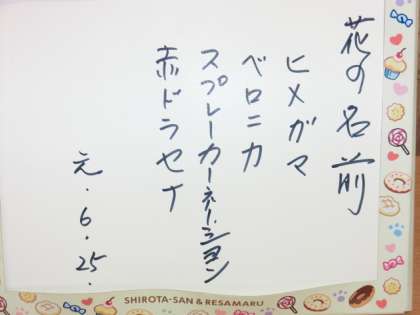 花の名前
ヒメガマ
ベロニカ
スプレーカーネーション
赤ドラセナ
元.6.25.
SHIROTA-SAN & RESAMARU